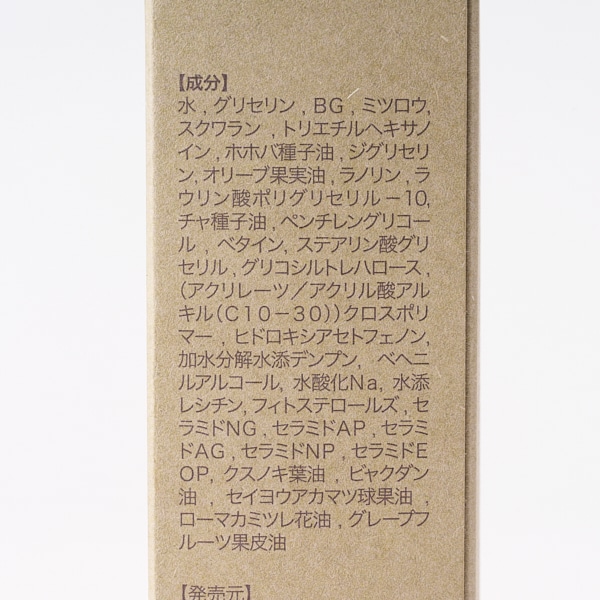 【成分】
水 , グリセリン , BG , ミツロウ,
スクワラン , トリエチルヘキサノ
イン , ホホバ種子油 , ジグリセリ
ン, オリーブ果実油 , ラノリン , ラ
ウリン酸ポリグリセリル－10,
チャ種子油 , ペンチレングリコー
ル , ベタイン, ステアリン酸グリ
セリル , グリコシルトレハロース ,
（アクリレーツ／アクリル酸アル
キル（C10－30））クロスポリ
マー , ヒドロキシアセトフェノン,
加水分解水添デンプン, ベヘニ
ルアルコール, 水酸化Na, 水添
レシチン, フィトステロールズ , セ
ラミドNG , セラミドAP , セラミ
ドAG , セラミドNP , セラミドE
OP, クスノキ葉油 , ビャクダン
油 , セイヨウアカマツ球果油 ,
ローマカミツレ花油 , グレープフ
ルーツ果皮油
【発売元】